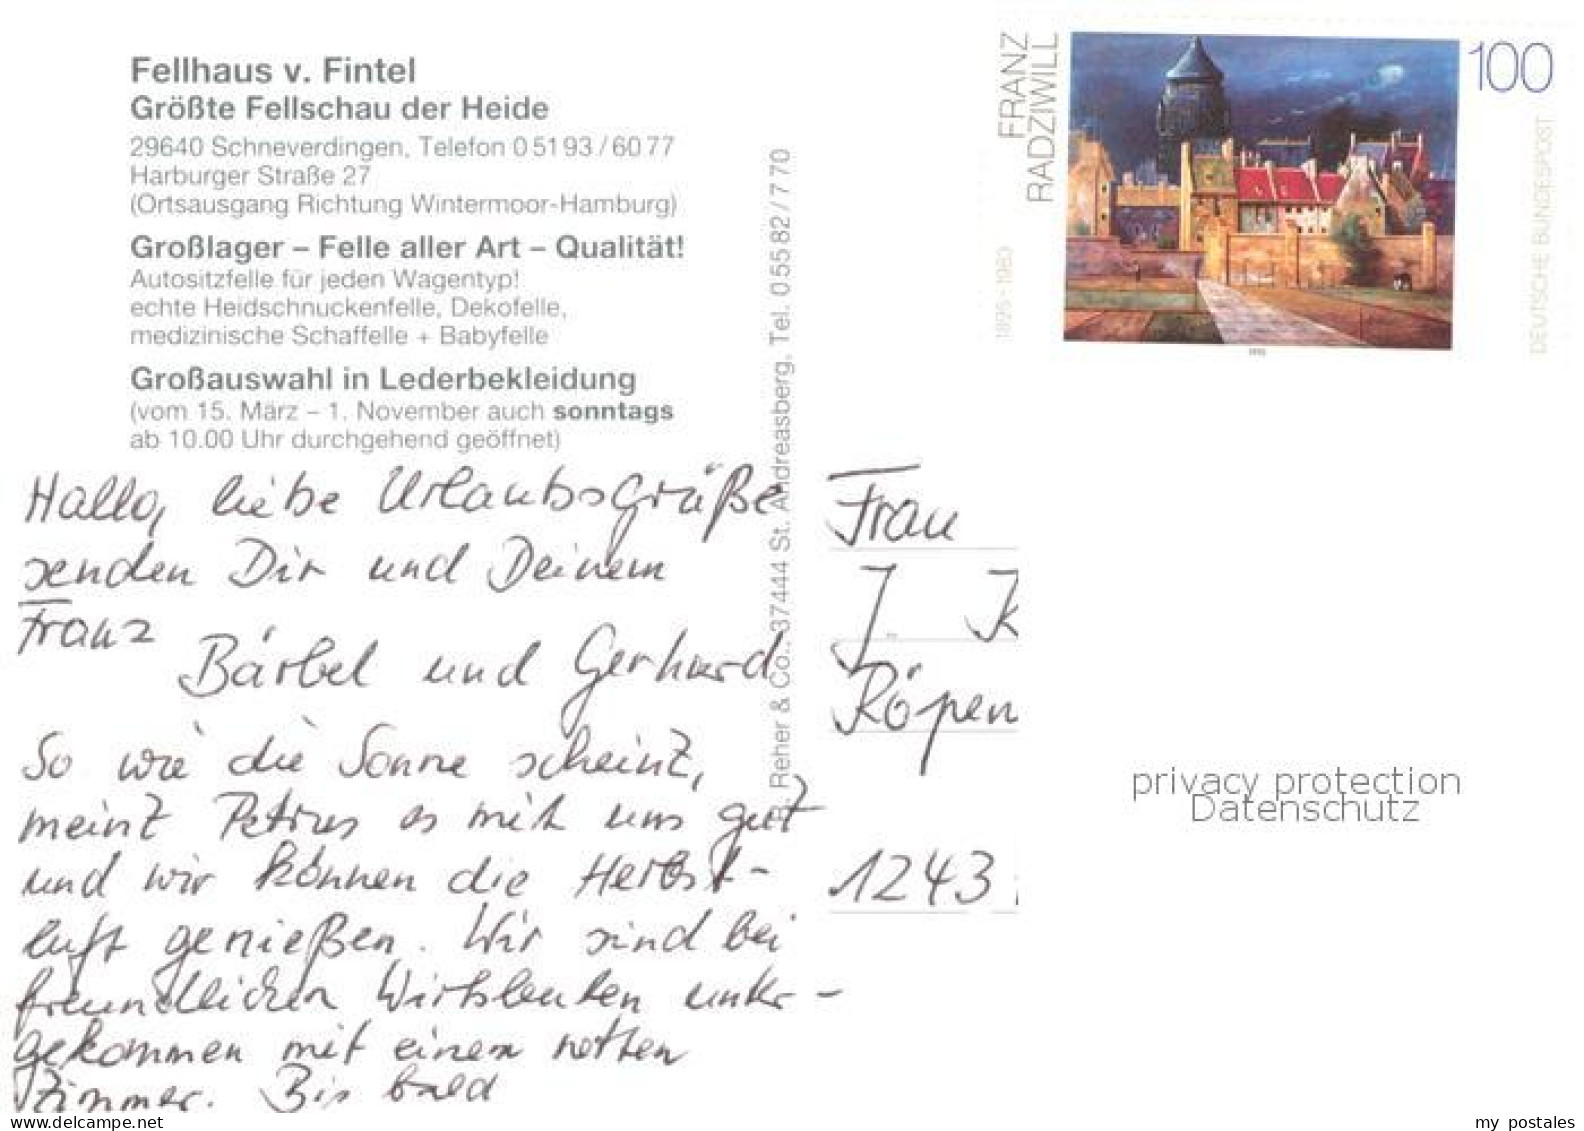 Fellhaus v. Fintel
Größte Fellschau der Heide
29640 Schneverdingen, Telefon 0 51 93 / 60 77
Harburger Straße 27
(Ortsausgang Richtung Wintermoor-Hamburg)
Großlager – Felle aller Art – Qualität!
Autositzfelle für jeden Wagentyp!
echte Heidschnuckenfelle, Dekofelle,
medizinische Schaffelle + Babyfelle
Großauswahl in Lederbekleidung
(vom 15. März – 1. November auch sonntags
ab 10.00 Uhr durchgehend geöffnet)
Hallo, liebe Urlaubsgrüße
senden Dir und Deinem
Franz
Bärbel und Gerhard
So wie die Sonne scheint,
meint Petrus es mit uns gut
und wir können die Herbst-
luft genießen. Wir sind bei
freundlichen Wirtsleuten unter-
gekommen mit einem netten
Zimmer. Bis bald
Reher & Co., 37444 St. Andreasberg, Tel. 0 55 82 / 7 70
FRANZ
RADZIWILL
1895-1983
100
DEUTSCHE BUNDESPOST
Frau
J. K
Röpen
1243
privacy protection
Datenschutz
delcampe.net
my postales